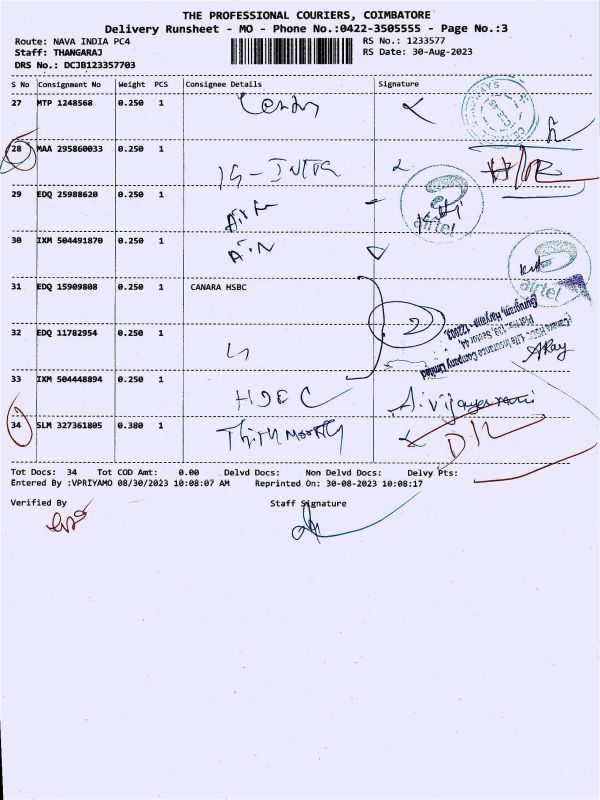 THE PROFESSIONAL COURIERS, COIMBATORE
Delivery Runsheet - MO - Phone No.:0422-3505555 - Page No.:3
Route: NAVA INDIA PC4 RS No.: 1233577
Staff: THANGARAJ RS Date: 30-Aug-2023
DRS No.: DCJB123357703
S No Consignment No Weight PCS Consignee Details Signature
27 MTP 1248568 0.250 1
28 MAA 295860033 0.250 1
29 EDQ 25988620 0.250 1
airtel
30 IXM 504491870 0.250 1
airtel
31 EDQ 15909808 0.250 1 CANARA HSBC
2
(Canara HSBC Life Insurance Company Limited
Plot No. 139, Sector 44,
Gurugram, Haryana - 122003.
32 EDQ 11782954 0.250 1
33 IXM 504448894 0.250 1
34 SLM 327361805 0.380 1 D/L
Tot Docs: 34 Tot COD Amt: 0.00 Delvd Docs: Non Delvd Docs: Delvy Pts:
Entered By :VPRIYAMO 08/30/2023 10:08:07 AM Reprinted On: 30-08-2023 10:08:17
Verified By Staff Signature